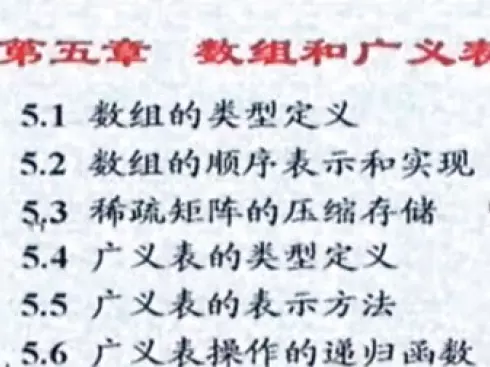 第五章 数组和广义表
5.1 数组的类型定义
5.2 数组的顺序表示和实现
5.3 稀疏矩阵的压缩存储
5.4 广义表的类型定义
5.5 广义表的表示方法
5.6 广义表操作的递归函数